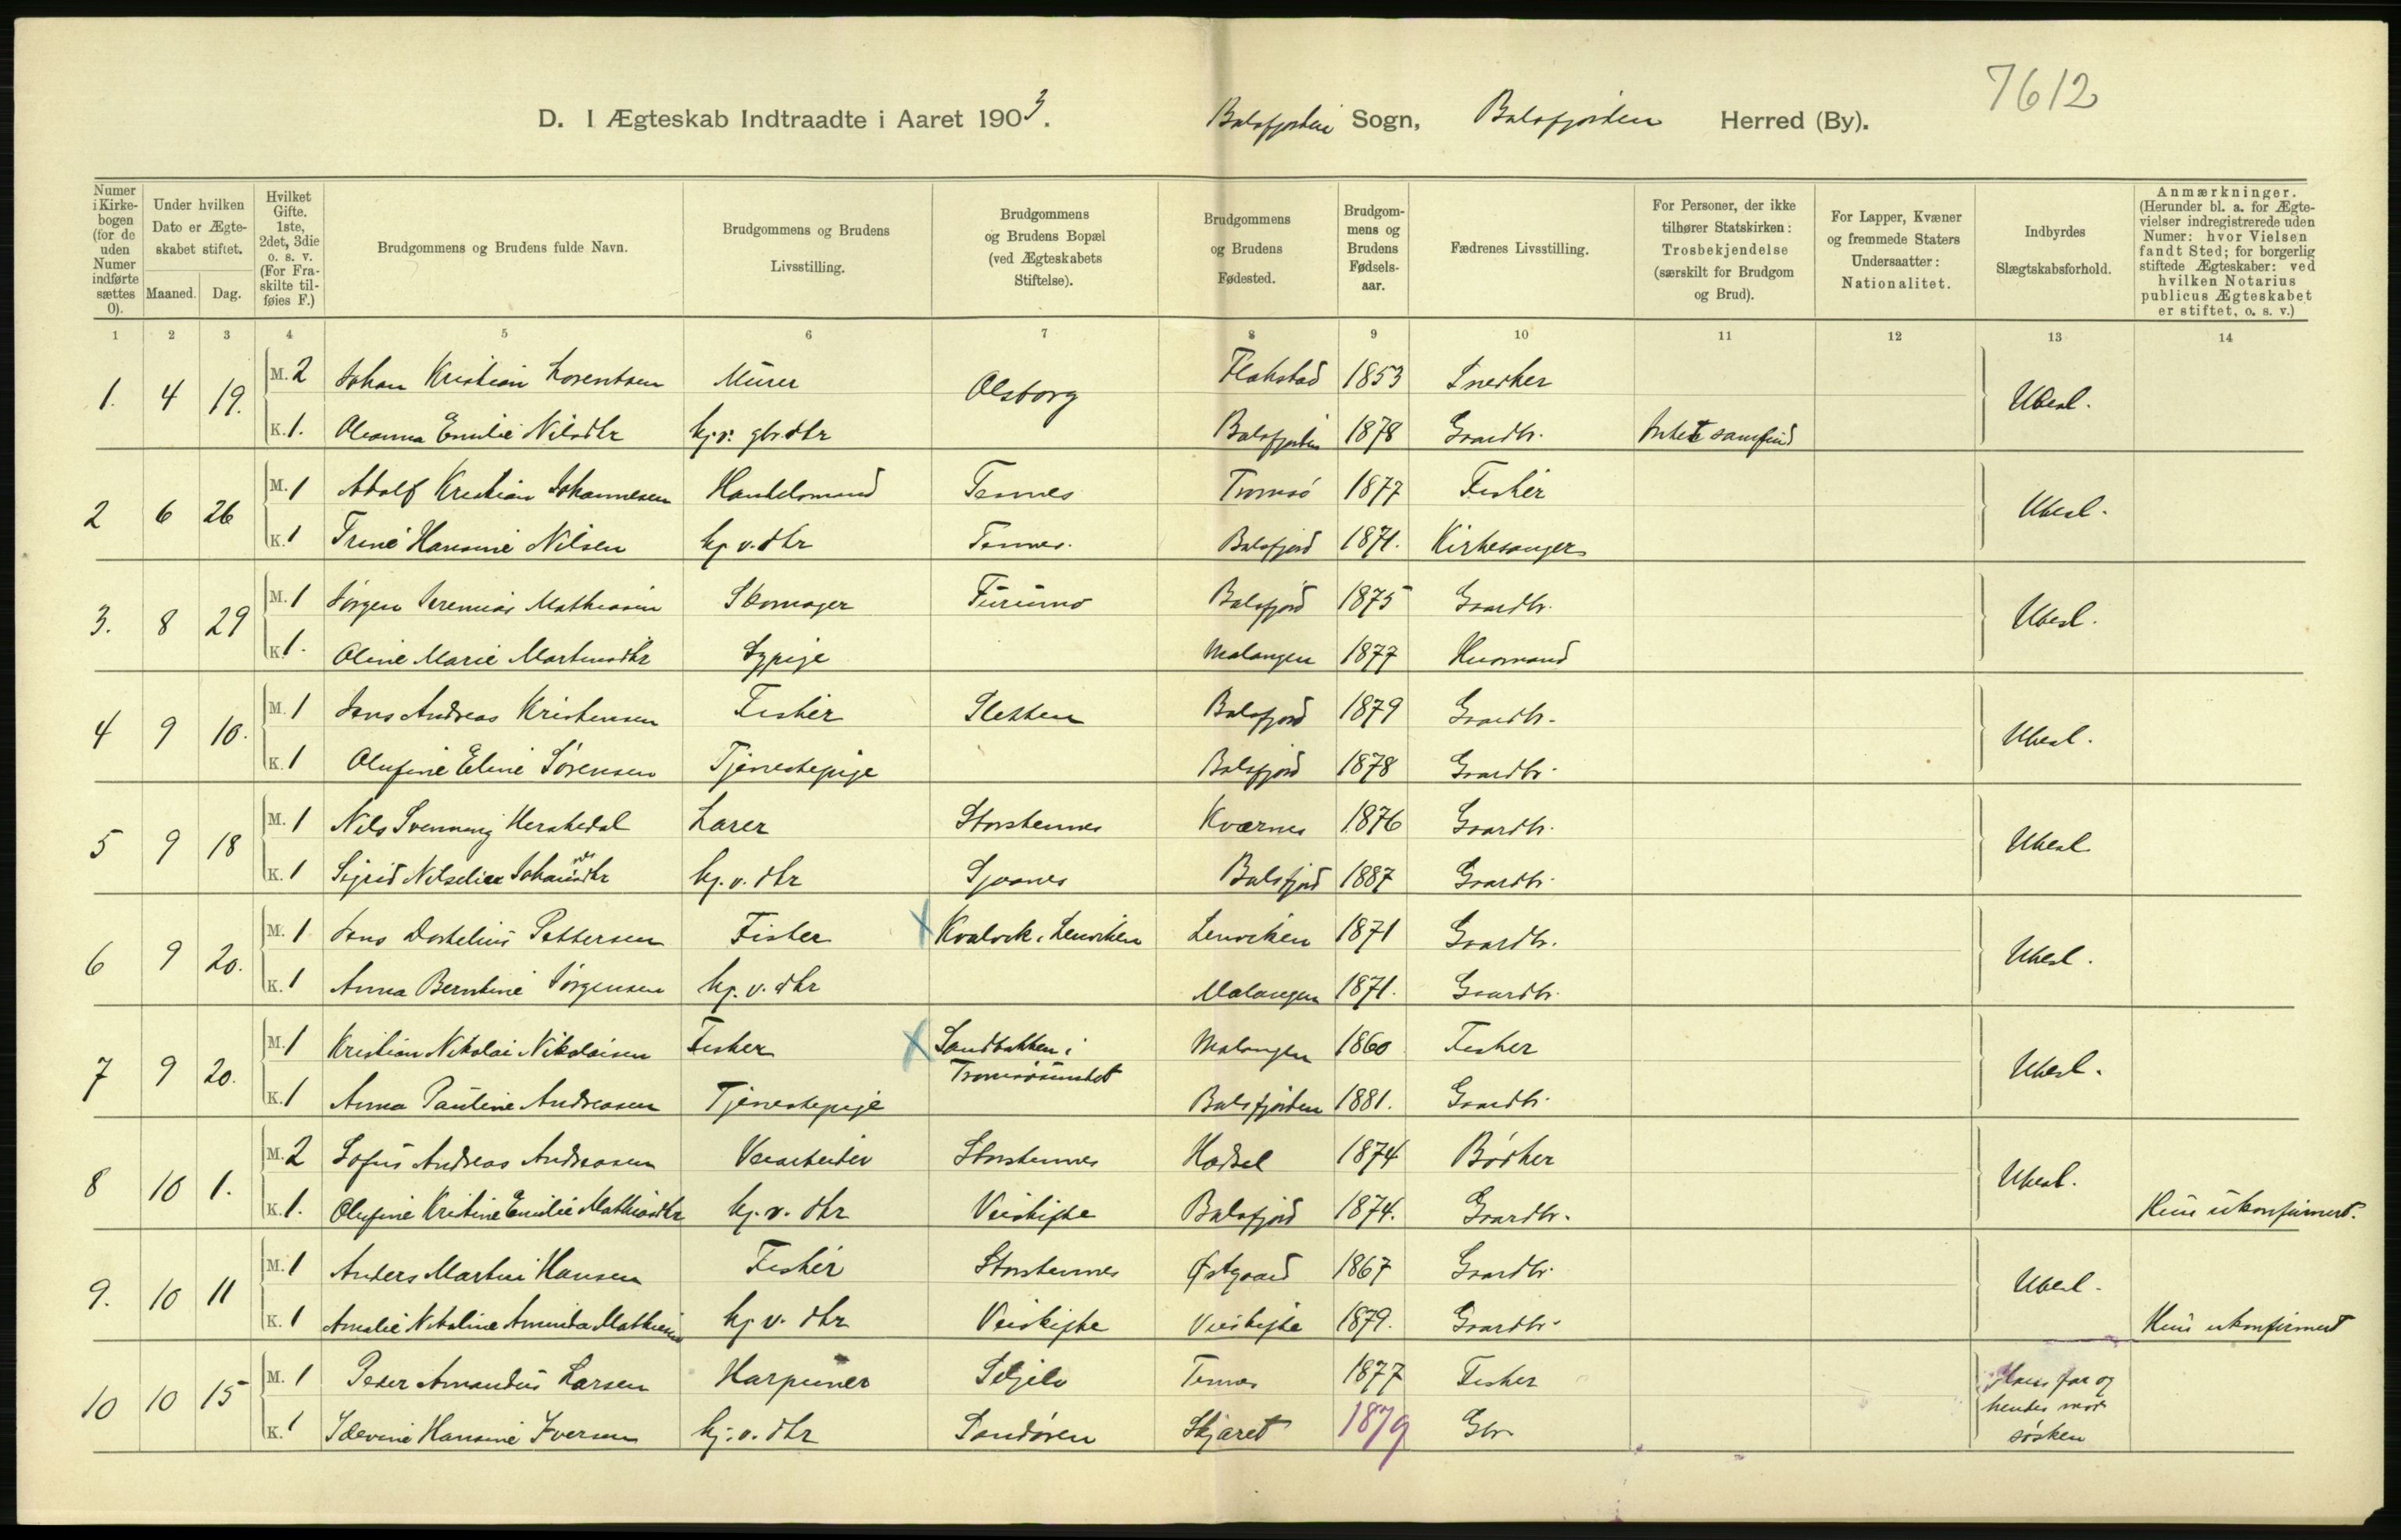 7612
D. I Ægteskab Indtraadte i Aaret 1903. Balsfjorden Sogn, Balsfjorden Herred (By).
Numer i Kirkebogen (for de uden Numer indførte sættes 0).
Under hvilken Dato er Ægteskabet stiftet.
Maaned. Dag.
Hvilket Gifte. 1ste, 2det, 3die o. s. v. (For Fraskilte tilføies F.)
Brudgommens og Brudens fulde Navn.
Brudgommens og Brudens Livsstilling.
Brudgommens og Brudens Bopæl (ved Ægteskabets Stiftelse).
Brudgommens og Brudens Fødested.
Brudgommens og Brudens Fødselsaar.
Fædrenes Livsstilling.
For Personer, der ikke tilhører Statskirken: Trosbekjendelse (særskilt for Brudgom og Brud).
For Lapper, Kvæner og fremmede Staters Undersaatter: Nationalitet.
Indbyrdes Slægtskabsforhold.
Anmærkninger. (Herunder bl. a. for Ægtevielser indregistrerede uden Numer: hvor Vielsen fandt Sted; for borgerlig stiftede Ægteskaber: ved hvilken Notarius publicus Ægteskabet er stiftet, o. s. v.)
1 2 3 4 5 6 7 8 9 10 11 12 13 14
1. 4 19. M. 2 Johan Kristian Lorentsen Murer Olsborg Flakstad 1853 Snedker Ubesl.
K. 1. Oleanna Emilie Nilsdtr hj. v. gbr. dtr Balsfjorden 1878 Gaardbr.
2 6 26 M. 1 Adolf Kristian Johannesen Handelsmand Tennes Tromsø 1877 Fisker Ubesl.
K. 1 Trine Hansine Nilsen hj. v. dtr Tennes. Balsfjord 1871. Kirkesanger
3. 8 29 M. 1 Jørgen Jeremias Mathiasen Skomager Balsfjord 1875 Gaardbr. Ubesl.
K. 1. Oline Marie Martinsdtr Sypige Malangen 1877 Husmand
4 9 10. M. 1 Jens Andreas Kristensen Fisker Sletten Balsfjord 1879 Gaardbr. Ubesl.
K. 1 Olufine Eline Sørensen Tjenestepige Balsfjord 1878 Gaardbr.
5 9 18 M. 1 Nils Svenning Herskedal Lærer Storstennes Kværnes 1876 Gaardbr. Ubesl
K. 1 Sigrid hj. v. dtr Balsfjord 1887 Gaardbr.
6 9 20. M. 1 Jens Pettersen Fisker Lenviken Lenviken 1871 Gaardbr. Ubesl.
K. 1 Anna Berntine Jørgensen hj. v. dtr Malangen 1871. Gaardbr.
7 9 20. M. 1 Kristian Nikolai Nikolaisen Fisker Sandbakken i Malangen 1860 Fisker Ubesl.
Tromsøsundet
K. 1 Anna Pauline Andreasen Tjenestepige Balsfjorden 1881. Gaardbr.
8 10 1. M. 2 Sofus Andreas Andreasen Veiarbeider Storstennes Hadsel 1874 Bødker Ubesl.
K. 1. Olufine Kristine Emilie Mathiasdtr hj. v. dtr Balsfjord 1874. Gaardbr. Hun ukonfirmert.
9. 10 11 M. 1 Anders Martin Hansen Fisker Storstennes 1867 Gaardbr. Ubesl.
K. 1 Amalie Nikoline hj. v. dtr 1879. Gaardbr. Hun ukonfirmert
10 10 15 M. 1 Peder Amandus Larsen Harpuner Seljelv Tennes 1877 Fisker Hans far og
hendes mor
K. 1 Idevine Hansine Iversen hj. v. dtr Sandøren Skjaret 1879 Gbr. søsken